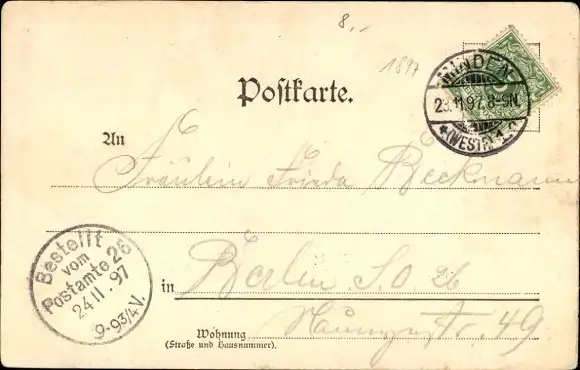 8,-
1897
Postkarte.
MINDEN
23.11.97. 8-9N.
*(WESTF.) 1
An
Fräulein Frieda Beekmann
Bestellt
vom
Postamte 26
24 11. 97
9-9¾V.
in Berlin S.O. 26
Wohnung 49
(Straße und Hausnummer).